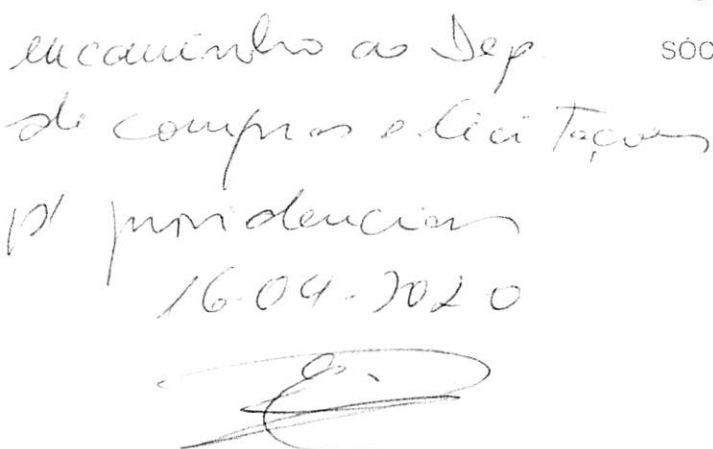 encaminho ao Dep SÓC
de compras e licitações
p/ providencias
16.04.2020